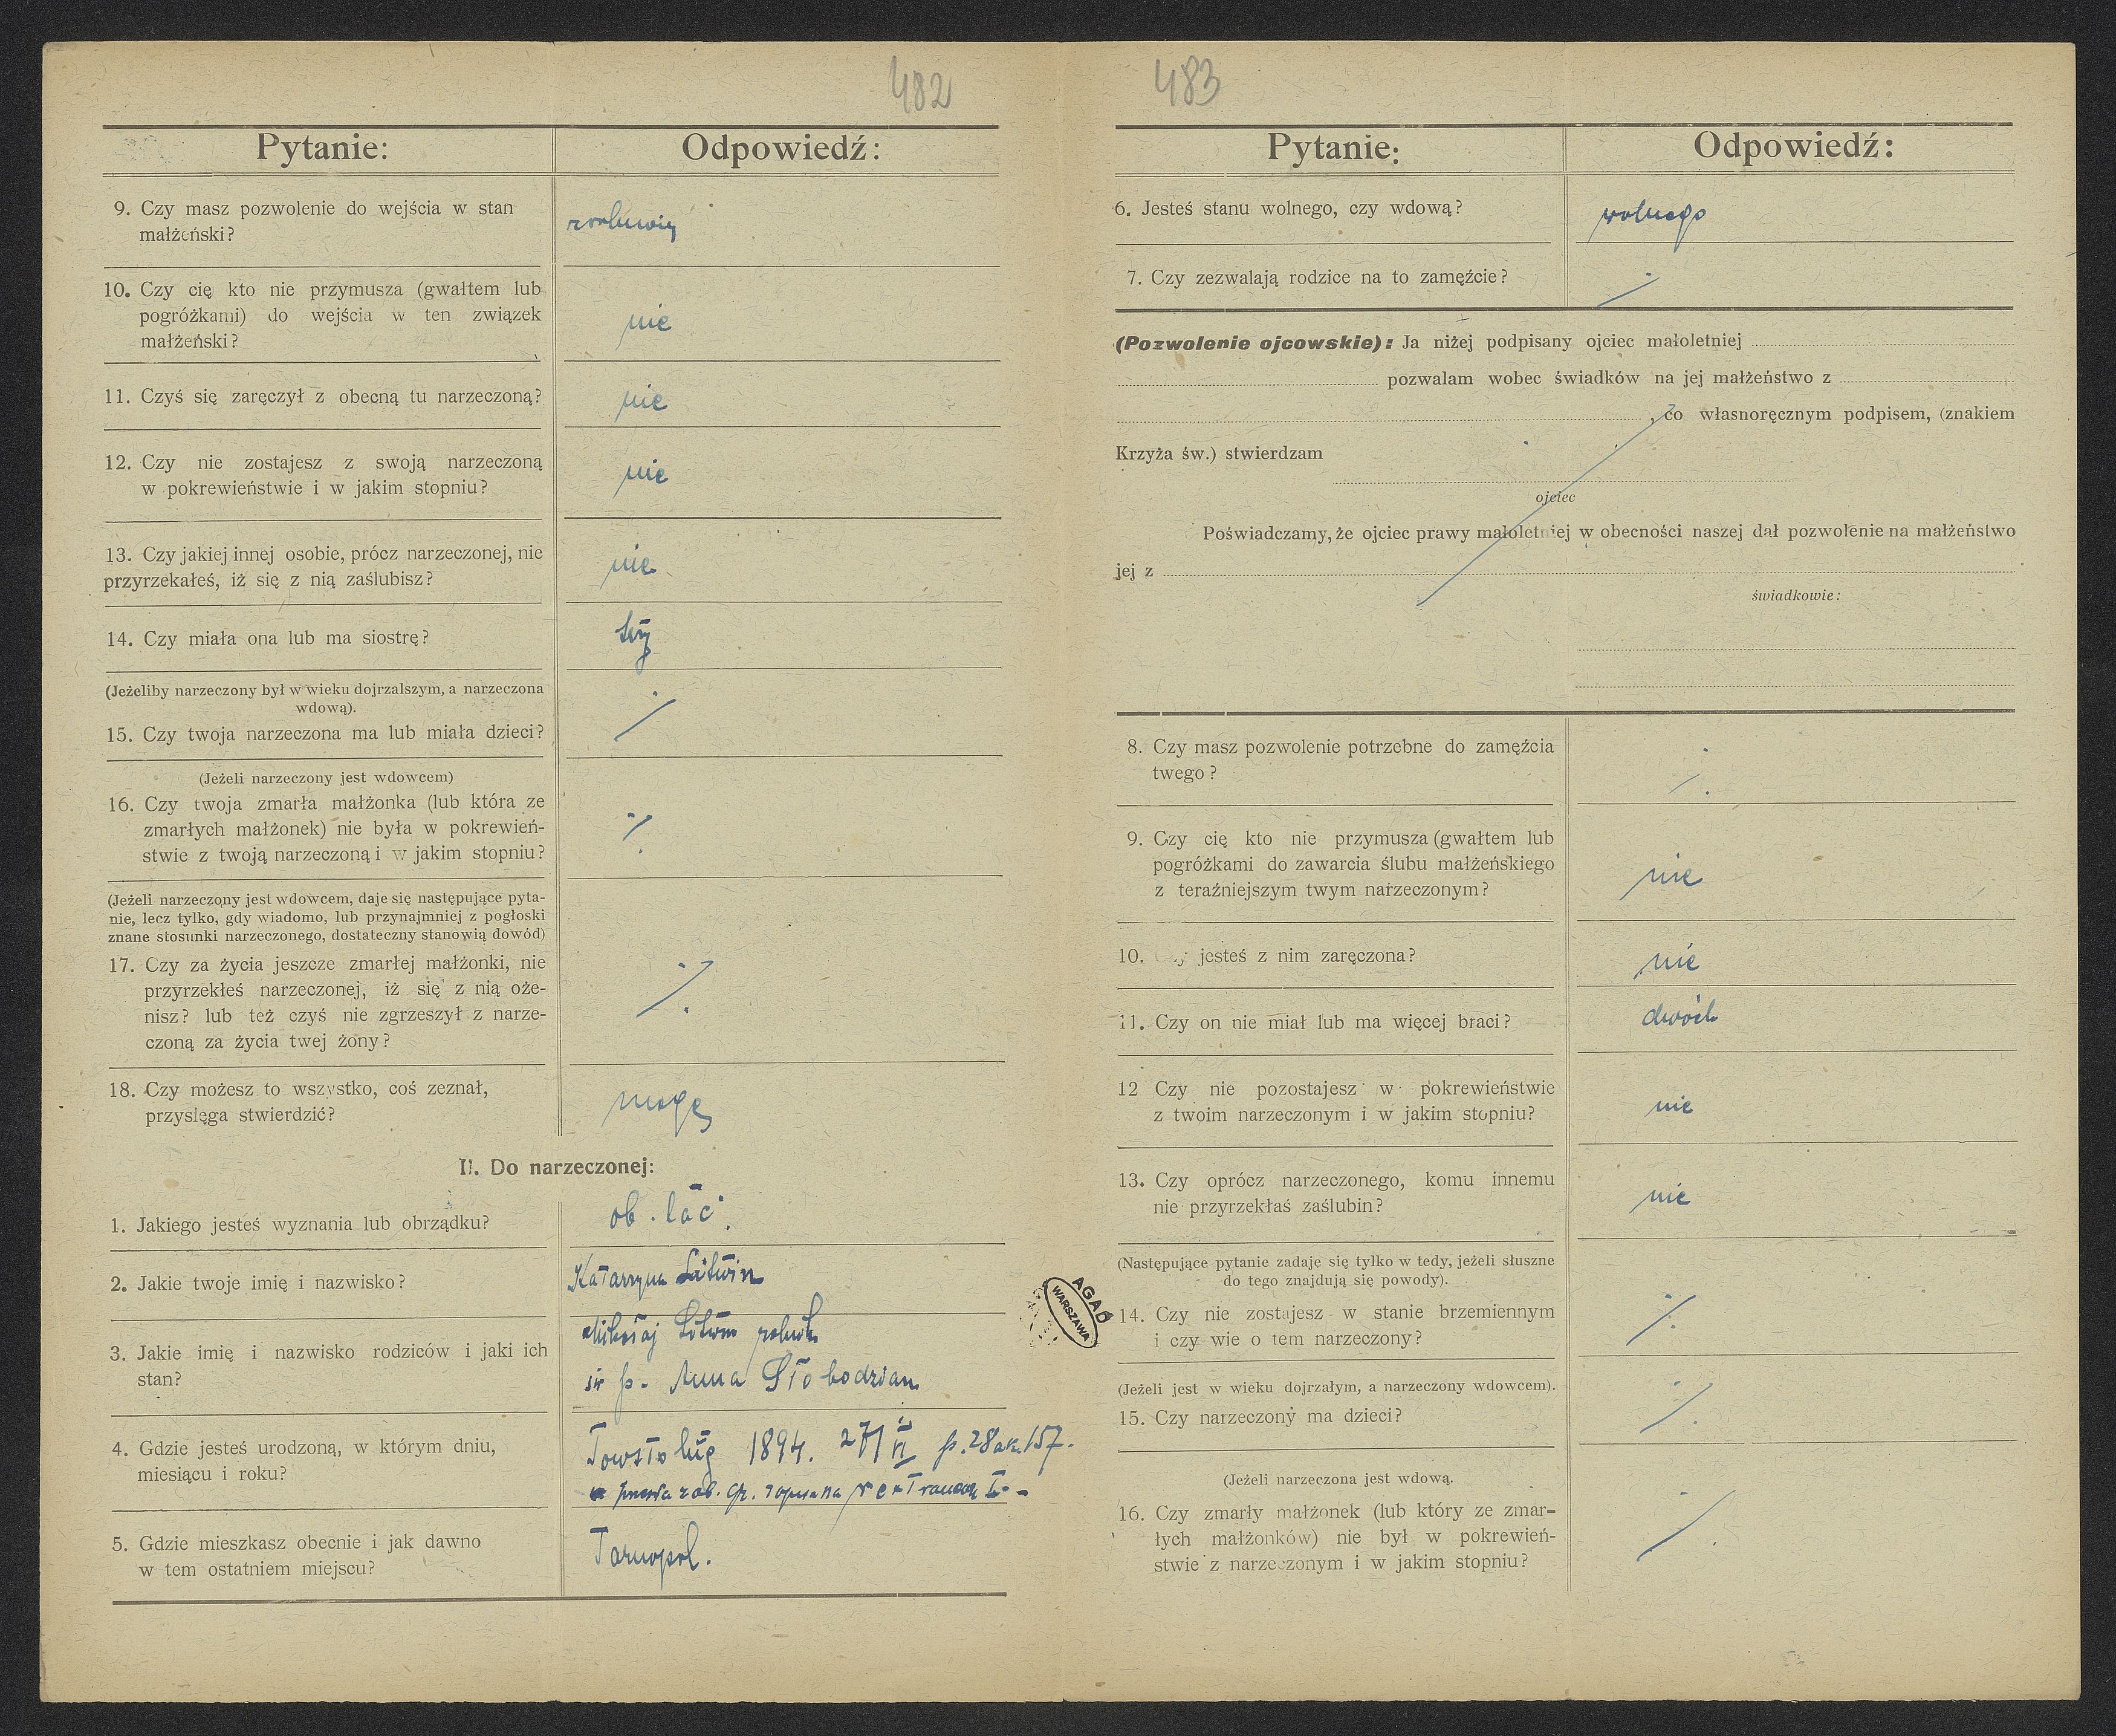 482
Pytanie:
Odpowiedź:
9. Czy masz pozwolenie do wejścia w stan
małżeński?
10. Czy cię kto nie przymusza (gwałtem lub
pogróżkami) do wejścia w ten związek
małżeński?
nie
11. Czyś się zaręczył z obecną tu narzeczoną?
nie
12. Czy nie zostajesz z swoją narzeczoną
w pokrewieństwie i w jakim stopniu?
nie
13. Czy jakiej innej osobie, prócz narzeczonej, nie
przyrzekałeś, iż się z nią zaślubisz?
nie
14. Czy miała ona lub ma siostrę?
(Jeżeliby narzeczony był w wieku dojrzalszym, a narzeczona
wdową).
15. Czy twoja narzeczona ma lub miała dzieci?
(Jeżeli narzeczony jest wdowcem)
16. Czy twoja zmarła małżonka (lub która ze
zmarłych małżonek) nie była w pokrewień-
stwie z twoją narzeczoną i w jakim stopniu?
(Jeżeli narzeczony jest wdowcem, daje się następujące pyta-
nie, lecz tylko, gdy wiadomo, lub przynajmniej z pogłoski
znane stosunki narzeczonego, dostateczny stanowią dowód)
17. Czy za życia jeszcze zmarłej małżonki, nie
przyrzekłeś narzeczonej, iż się z nią oże-
nisz? lub też czyś nie zgrzeszył z narze-
czoną za życia twej żony?
18. Czy możesz to wszystko, coś zeznał,
przysięga stwierdzić?
mogę
II. Do narzeczonej:
1. Jakiego jesteś wyznania lub obrządku?
ob. łać.
2. Jakie twoje imię i nazwisko?
Katarzyna Litwin
3. Jakie imię i nazwisko rodziców i jaki ich
stan?
Mikołaj Litwin
śp. Anna Słobodzian
4. Gdzie jesteś urodzoną, w którym dniu,
miesiącu i roku?
Towstoług 1894. 27/VI p. 28 ak. 157.
5. Gdzie mieszkasz obecnie i jak dawno
w tem ostatniem miejscu?
Tarnopol.
AGAD
WARSZAWA
483
Pytanie:
Odpowiedź:
6. Jesteś stanu wolnego, czy wdową?
wolnego
7. Czy zezwalają rodzice na to zamęźcie?
(Pozwolenie ojcowskie): Ja niżej podpisany ojciec małoletniej
pozwalam wobec świadków na jej małżeństwo z
, co własnoręcznym podpisem, (znakiem
Krzyża św.) stwierdzam
ojciec
Poświadczamy, że ojciec prawy małoletniej w obecności naszej dał pozwolenie na małżeństwo
jej z
świadkowie:
8. Czy masz pozwolenie potrzebne do zamęźcia
twego?
9. Czy cię kto nie przymusza (gwałtem lub
pogróżkami do zawarcia ślubu małżeńskiego
z teraźniejszym twym narzeczonym?
nie
10. Czy jesteś z nim zaręczona?
nie
11. Czy on nie miał lub ma więcej braci?
dwóch
12 Czy nie pozostajesz w pokrewieństwie
z twoim narzeczonym i w jakim stopniu?
nie
13. Czy oprócz narzeczonego, komu innemu
nie przyrzekłaś zaślubin?
nie
(Następujące pytanie zadaje się tylko w tedy, jeżeli słuszne
do tego znajdują się powody).
14. Czy nie zostajesz w stanie brzemiennym
i czy wie o tem narzeczony?
(Jeżeli jest w wieku dojrzałym, a narzeczony wdowcem).
15. Czy narzeczony ma dzieci?
(Jeżeli narzeczona jest wdową.
16. Czy zmarły małżonek (lub który ze zmar-
łych małżonków) nie był w pokrewień-
stwie z narzeczonym i w jakim stopniu?